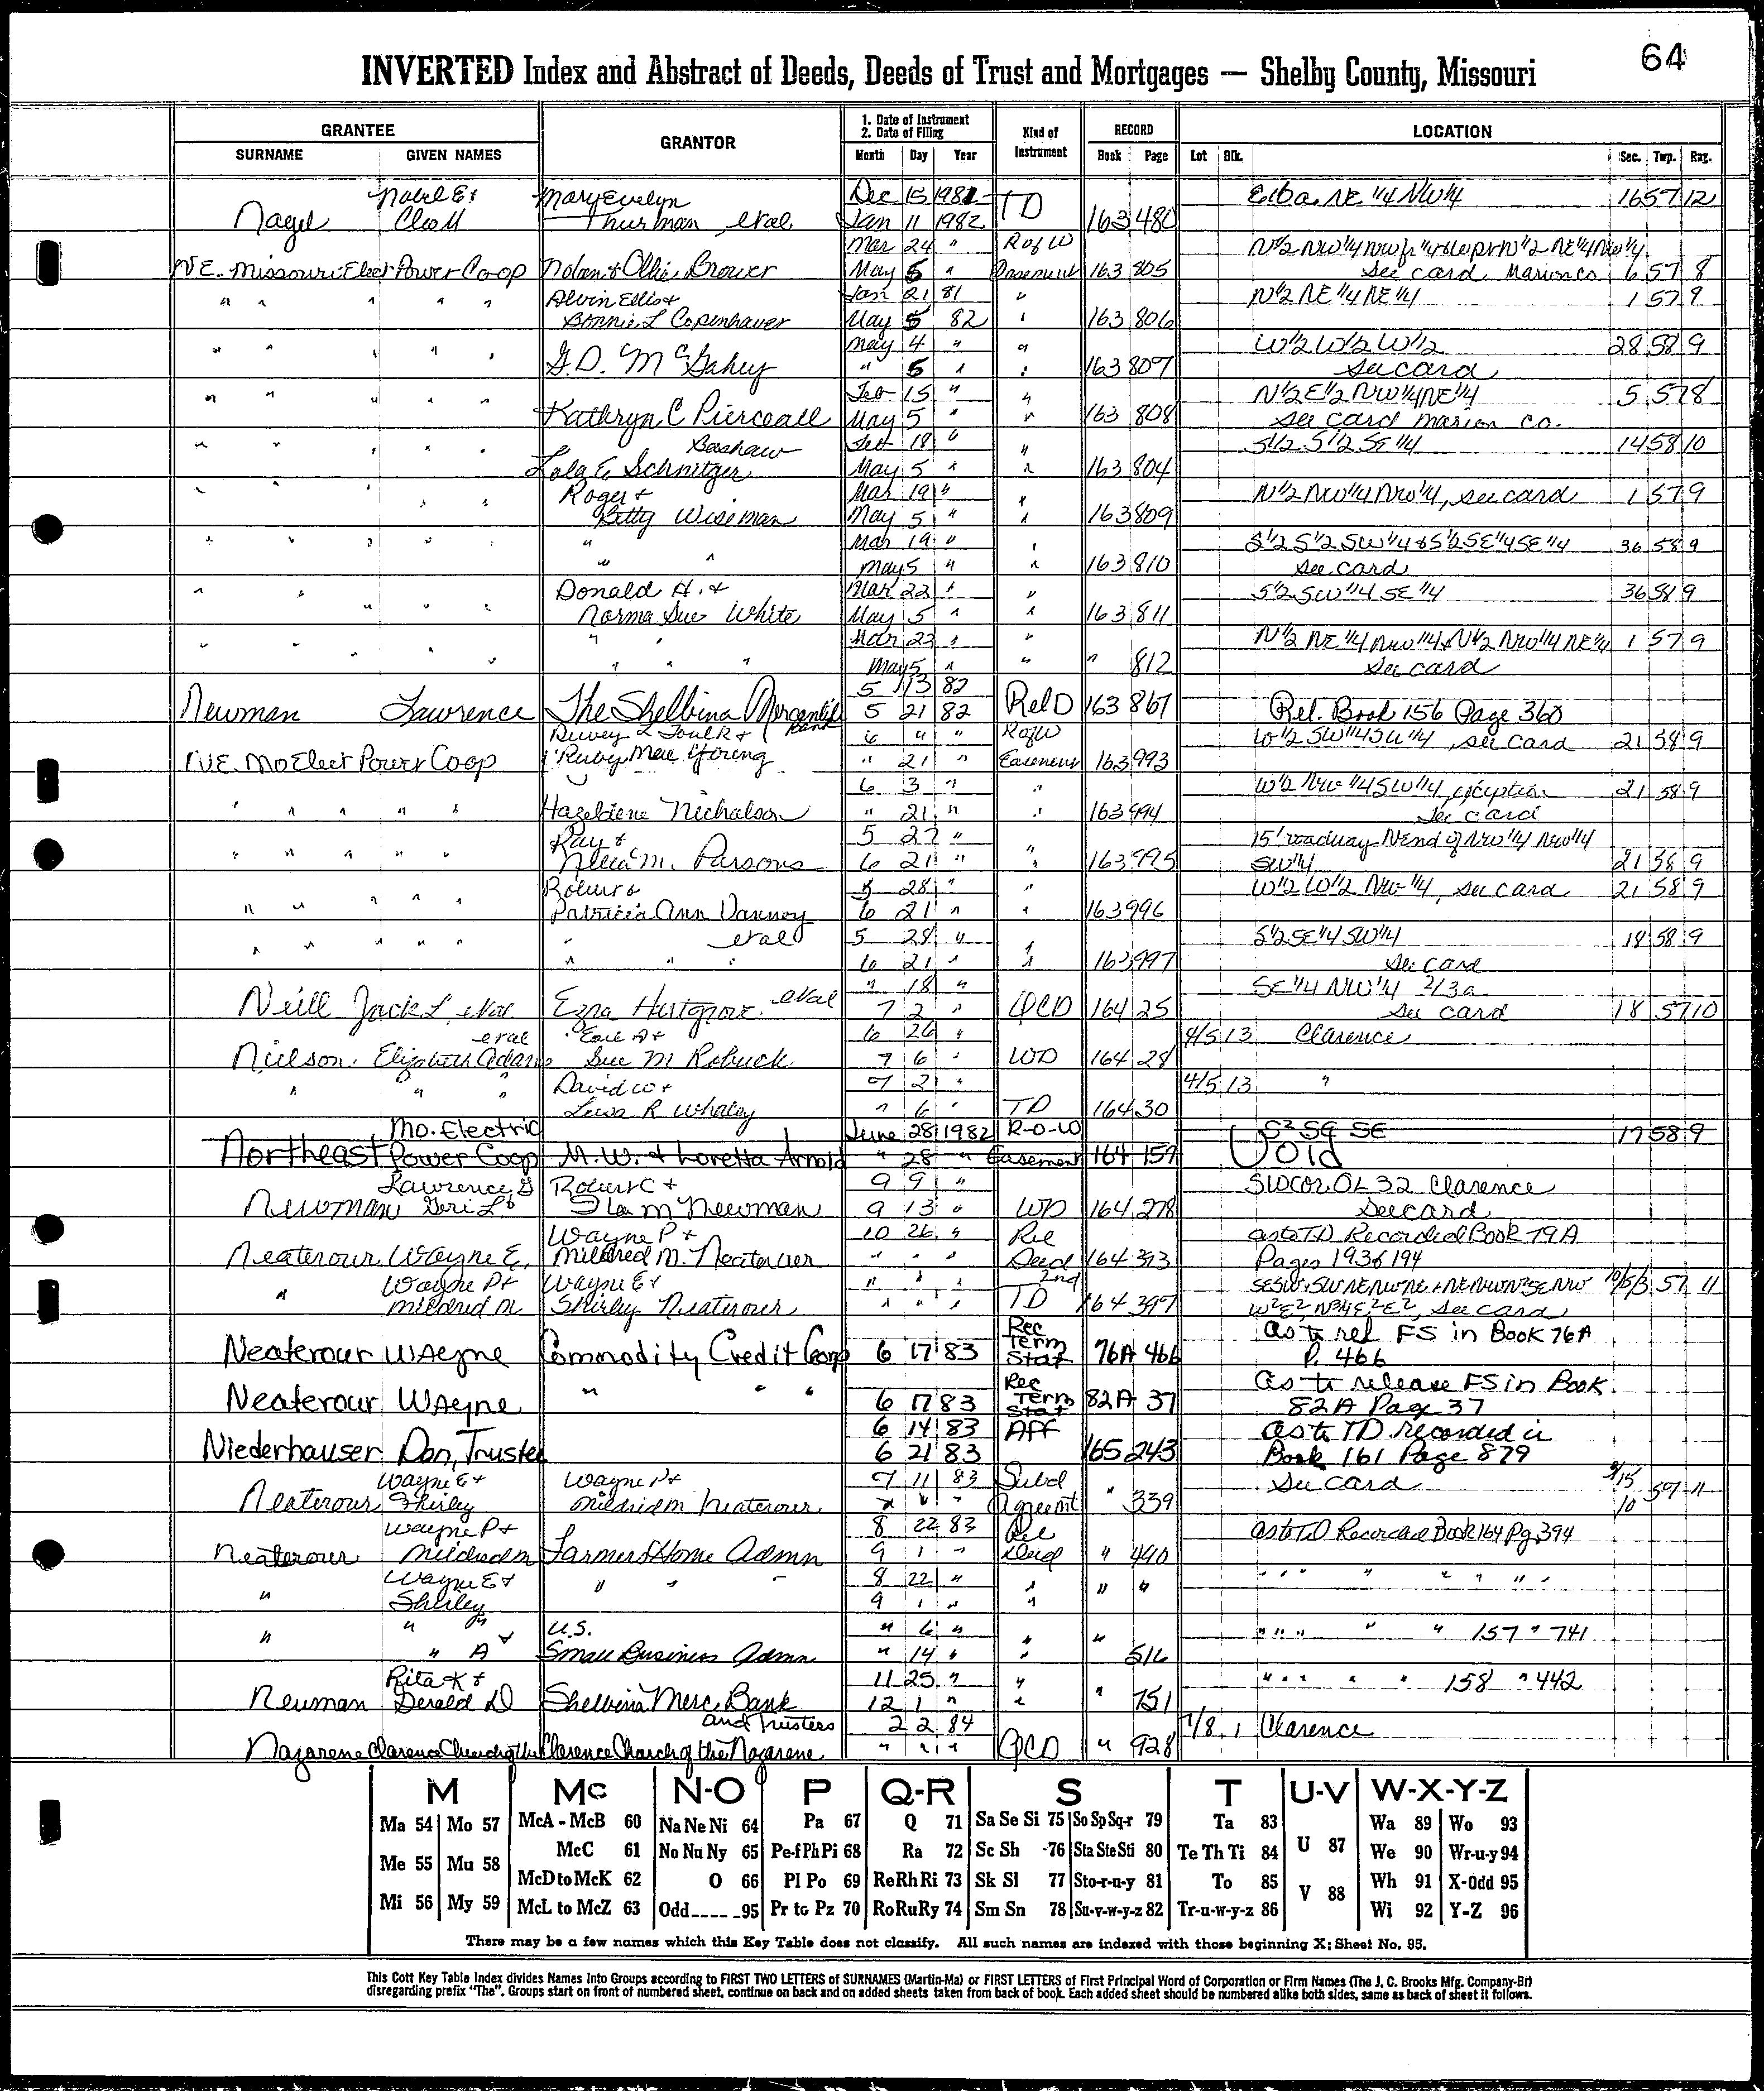 64
INVERTED Index and Abstract of Deeds, Deeds of Trust and Mortgages — Shelby County, Missouri
GRANTEE GRANTOR 1. Date of Instrument 2. Date of Filing Kind of Instrument RECORD LOCATION
SURNAME GIVEN NAMES Month Day Year Book Page Lot Blk. Sec. Twp. Rag.
Mary Evelyn Dec 15 1981 NE 1/4 NW 1/4 16 57 12
Nagel Cleo M Thurman etal Jan 11 1982 TD 163 480
Mar 24 " R of W
N.E. Missouri Elect Power Co-op Nolan & Ollie Brower May 5 " Easement 163 805 See card Marion co. 6 57 8
" " " " " Alvin Ellis & Jan 21 81 " N 1/2 NE 1/4 NE 1/4 1 57 9
Bonnie L Copenhaver May 5 82 " 163 806
" " " " " May 4 " " W 1/2 W 1/2 W 1/2 28 58 9
G.D. McGahey " 5 " " 163 807 See card
" " " " " Feb 15 " " N 1/2 E 1/2 NW 1/4 NE 1/4 5 57 8
Kathryn C Pierceall May 5 " " 163 808 See card Marion co.
" " " " Bashaw Feb 18 " " S 1/2 S 1/2 SE 1/4 14 58 10
Lola E Schnitzer May 5 " " 163 804
" " " " " Roger & Mar 19 " " N 1/2 NW 1/4 NW 1/4, see card 1 57 9
Betty Wiseman May 5 " " 163 809
" " " " " " Mar 19 " " S 1/2 S 1/2 SW 1/4 & S 1/2 SE 1/4 SE 1/4 36 58 9
" " May 5 " " 163 810 See card
" " " " " Donald H. & Mar 22 " " S 1/2 SW 1/4 SE 1/4 36 58 9
Norma Sue White May 5 " " 163 811
" " " " " " " Mar 23 " " N 1/2 NE 1/4 NW 1/4 & N 1/2 NW 1/4 NE 1/4 1 57 9
" " " May 5 " " " 812 See card
5 13 82
Newman Lawrence The Shelbina Mercantile Bank 5 21 82 Rel D 163 867 Rel. Book 156 Page 360
6 " " R of W W 1/2 SW 1/4 SW 1/4, see card 21 58 9
N.E. Mo Elect Power Coop Ruby Mae " 21 " Easement 163 993
6 3 " " W 1/2 NW 1/4 SW 1/4, exception 21 58 9
" " " " " Nichalson " 21 " " 163 994 See card
Ray & 5 27 " " 15' roadway N end of NW 1/4 NW 1/4
" " " " " M. Parsons 6 21 " " 163 995 SW 1/4 21 58 9
Robert & 5 28 " " W 1/2 W 1/2 NW 1/4, see card 21 58 9
" " " " " Patricia Ann Vannoy 6 21 " " 163 996
" " " " " " etal 5 28 " " S 1/2 SE 1/4 SW 1/4 18 58 9
" " " 6 21 " " 163 997 See card
" 18 " SE 1/4 NW 1/4 2/3a
Neill Jack L. etal Ezra etal 7 2 " QCD 164 25 See card 18 57 10
etal Earl A & 6 26 " 4/5 13 Clarence
Nielson Elizabeth Adams Sue M Robuck 7 6 " WD 164 28
" " " David W & 7 2 " 4/5 13 "
R Whaley " 6 " TD 164 30
Mo. Electric June 28 1982 R-O-W 17 58 9
Northeast Power Coop M.W. & Loretta Arnold " 28 " Easement 164 157 Void
Lawrence G Robert C & 9 9 " SW Cor OL 32 Clarence
Newman Geri L Ila M Newman 9 13 " WD 164 278 See card
Wayne P & 10 26 " Rel as to TD Recorded Book 79A
Neaterour Wayne E. Mildred M. Neaterour " " " Deed 164 393 Pages 193 & 194
Wayne P & Wayne E & " " " 2nd 57 11
" Mildred M Shirley Neaterour " " " TD 164 397 See card
Neaterour Wayne Commodity Credit Corp 6 17 83 Rec Term Stat 76A 466 as to rel FS in Book 76A P. 466
Neaterour Wayne " " " 6 17 83 Rec Term Stat 82A 37 as to release FS in Book 82A Page 37
6 14 83 Aff as to TD recorded in
Niederhauser Don, Trustee 6 21 83 165 243 Book 161 Page 879
Wayne E & Wayne P & 7 11 83 Subd See Card 3/15
Neaterour Shirley Mildred M Neaterour " " " Agreemt " 339 10 57 11
Wayne P & 8 22 83 Rel as to TD Recorded Book 164 Pg 394
Neaterour Mildred M Farmers Home Admn 9 1 " Deed " 490
Wayne E & " " " 8 22 " " " " " " " " " " " "
" Shirley 9 1 " "
" " " U.S. " 6 " " " " " " " " 157 " 741
" A Small Business Admn " 14 " " 516
Rita K & 11 25 " " " " " " " 158 " 442
Newman Gerald D Shelbina Merc. Bank 12 1 " " " 751
and Trustees 2 2 84 7/8 1 Clarence
Nazarene Clarence Church of the Clarence Church of the Nazarene " " " QCD " 928
M Mc N-O P Q-R S T U-V W-X-Y-Z
Ma 54 Mo 57 McA - McB 60 Na Ne Ni 64 Pa 67 Q 71 Sa Se Si 75 So Sp Sq-r 79 Ta 83 Wa 89 Wo 93
Me 55 Mu 58 McC 61 No Nu Ny 65 Pe-f Ph Pi 68 Ra 72 Sc Sh -76 Sta Ste Sti 80 Te Th Ti 84 U 87 We 90 Wr-u-y 94
McD to McK 62 O 66 Pl Po 69 Re Rh Ri 73 Sk Sl 77 Sto-r-u-y 81 To 85 Wh 91 X-Odd 95
Mi 56 My 59 McL to McZ 63 Odd____-95 Pr to Pz 70 Ro Ru Ry 74 Sm Sn 78 Su-v-w-y-z 82 Tr-u-w-y-z 86 V 88 Wi 92 Y-Z 96
There may be a few names which this Key Table does not classify. All such names are indexed with those beginning X; Sheet No. 95.
This Cott Key Table Index divides Names Into Groups according to FIRST TWO LETTERS of SURNAMES (Martin-Ma) or FIRST LETTERS of First Principal Word of Corporation or Firm Names (The J. C. Brooks Mfg. Company-Br)
disregarding prefix "The". Groups start on front of numbered sheet, continue on back and on added sheets taken from back of book. Each added sheet should be numbered alike both sides, same as back of sheet it follows.